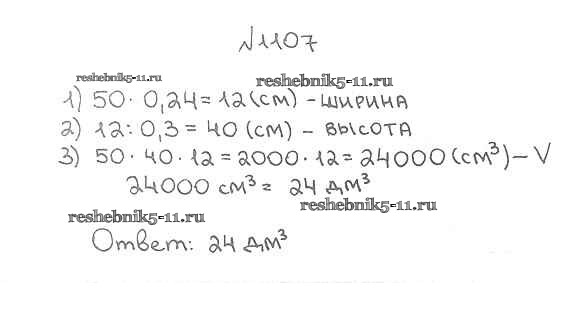 №1107
reshebnik5-11.ru
reshebnik5-11.ru
1) 50 · 0,24 = 12 (см) - ширина
2) 12 : 0,3 = 40 (см) - высота
3) 50 · 40 · 12 = 2000 · 12 = 24000 (см³) - V
24000 см³ = 24 дм³
reshebnik5-11.ru
reshebnik5-11.ru
Ответ: 24 дм³